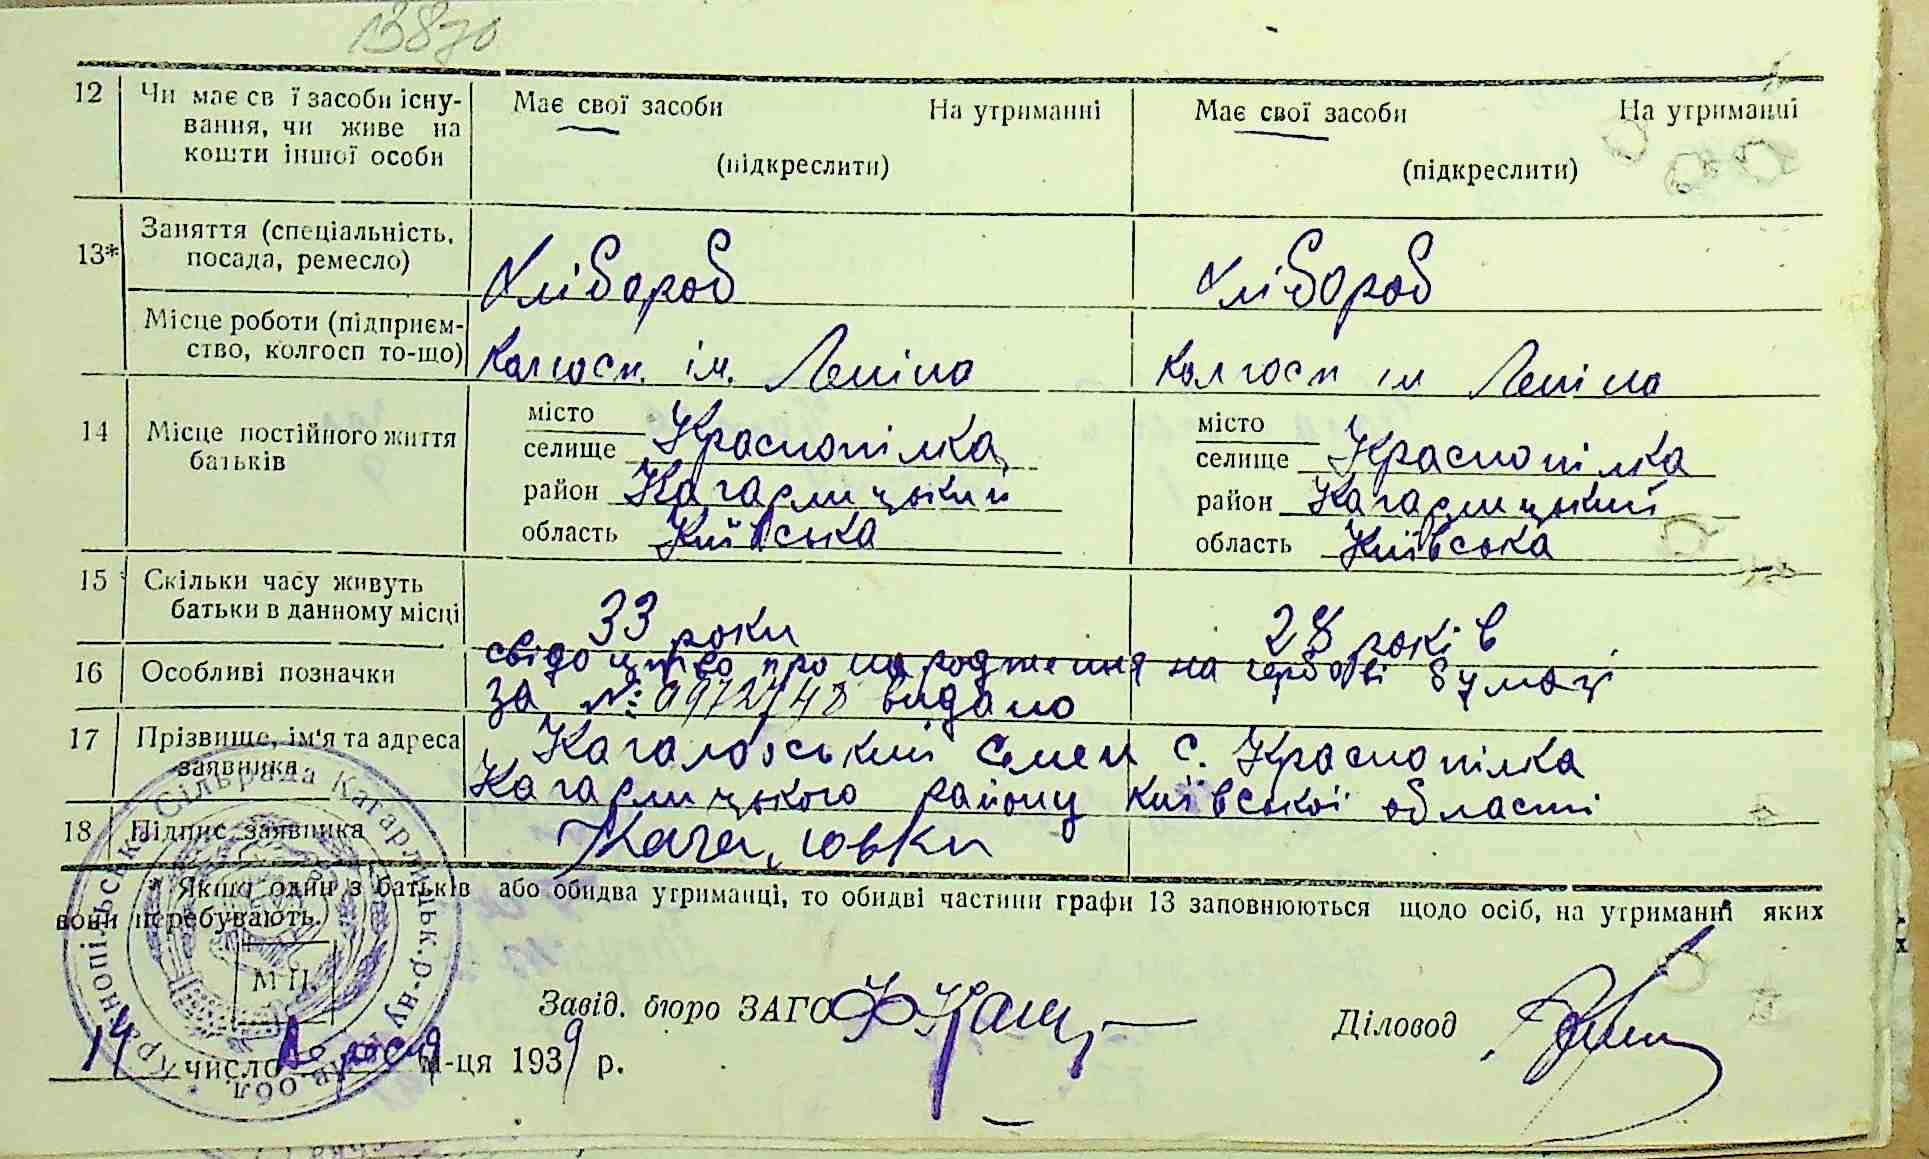 13870
12 Чи має св ї засоби існу- Має свої засоби На утриманні Має свої засоби На утриманні
вання, чи живе на
кошти іншої особи (підкреслити) (підкреслити)
13* Заняття (спеціальність, посада, ремесло) Хлібороб Хлібороб
Місце роботи (підприєм-
ство, колгосп то-що) Колгосп. ім. Леніна Колгосп ім Леніна
14 Місце постійного життя батьків
місто селище Краснопілка місто селище Краснопілка
район Кагарлицький район Кагарлицький
область Київська область Київська
15 Скільки часу живуть
батьки в данному місці 33 роки 28 років
16 Особливі позначки свідоцтво про народження на гербові бумазі
за №: 0972748 видано
17 Прізвище, ім'я та адреса заявника Кагаловський Семен с. Краснопілка
Кагарлицького району Київської області
18 Підпис заявника
Якщо один з батьків або обидва утриманці, то обидві частини графи 13 заповнюються щодо осіб, на утриманні яких
вони перебувають.)
М П.
Завід. бюро ЗАГС Діловод
14 число Вересня м-ця 1939 р.
Краснопільськ Сільрада Кагарлицьк. р-ну обл.